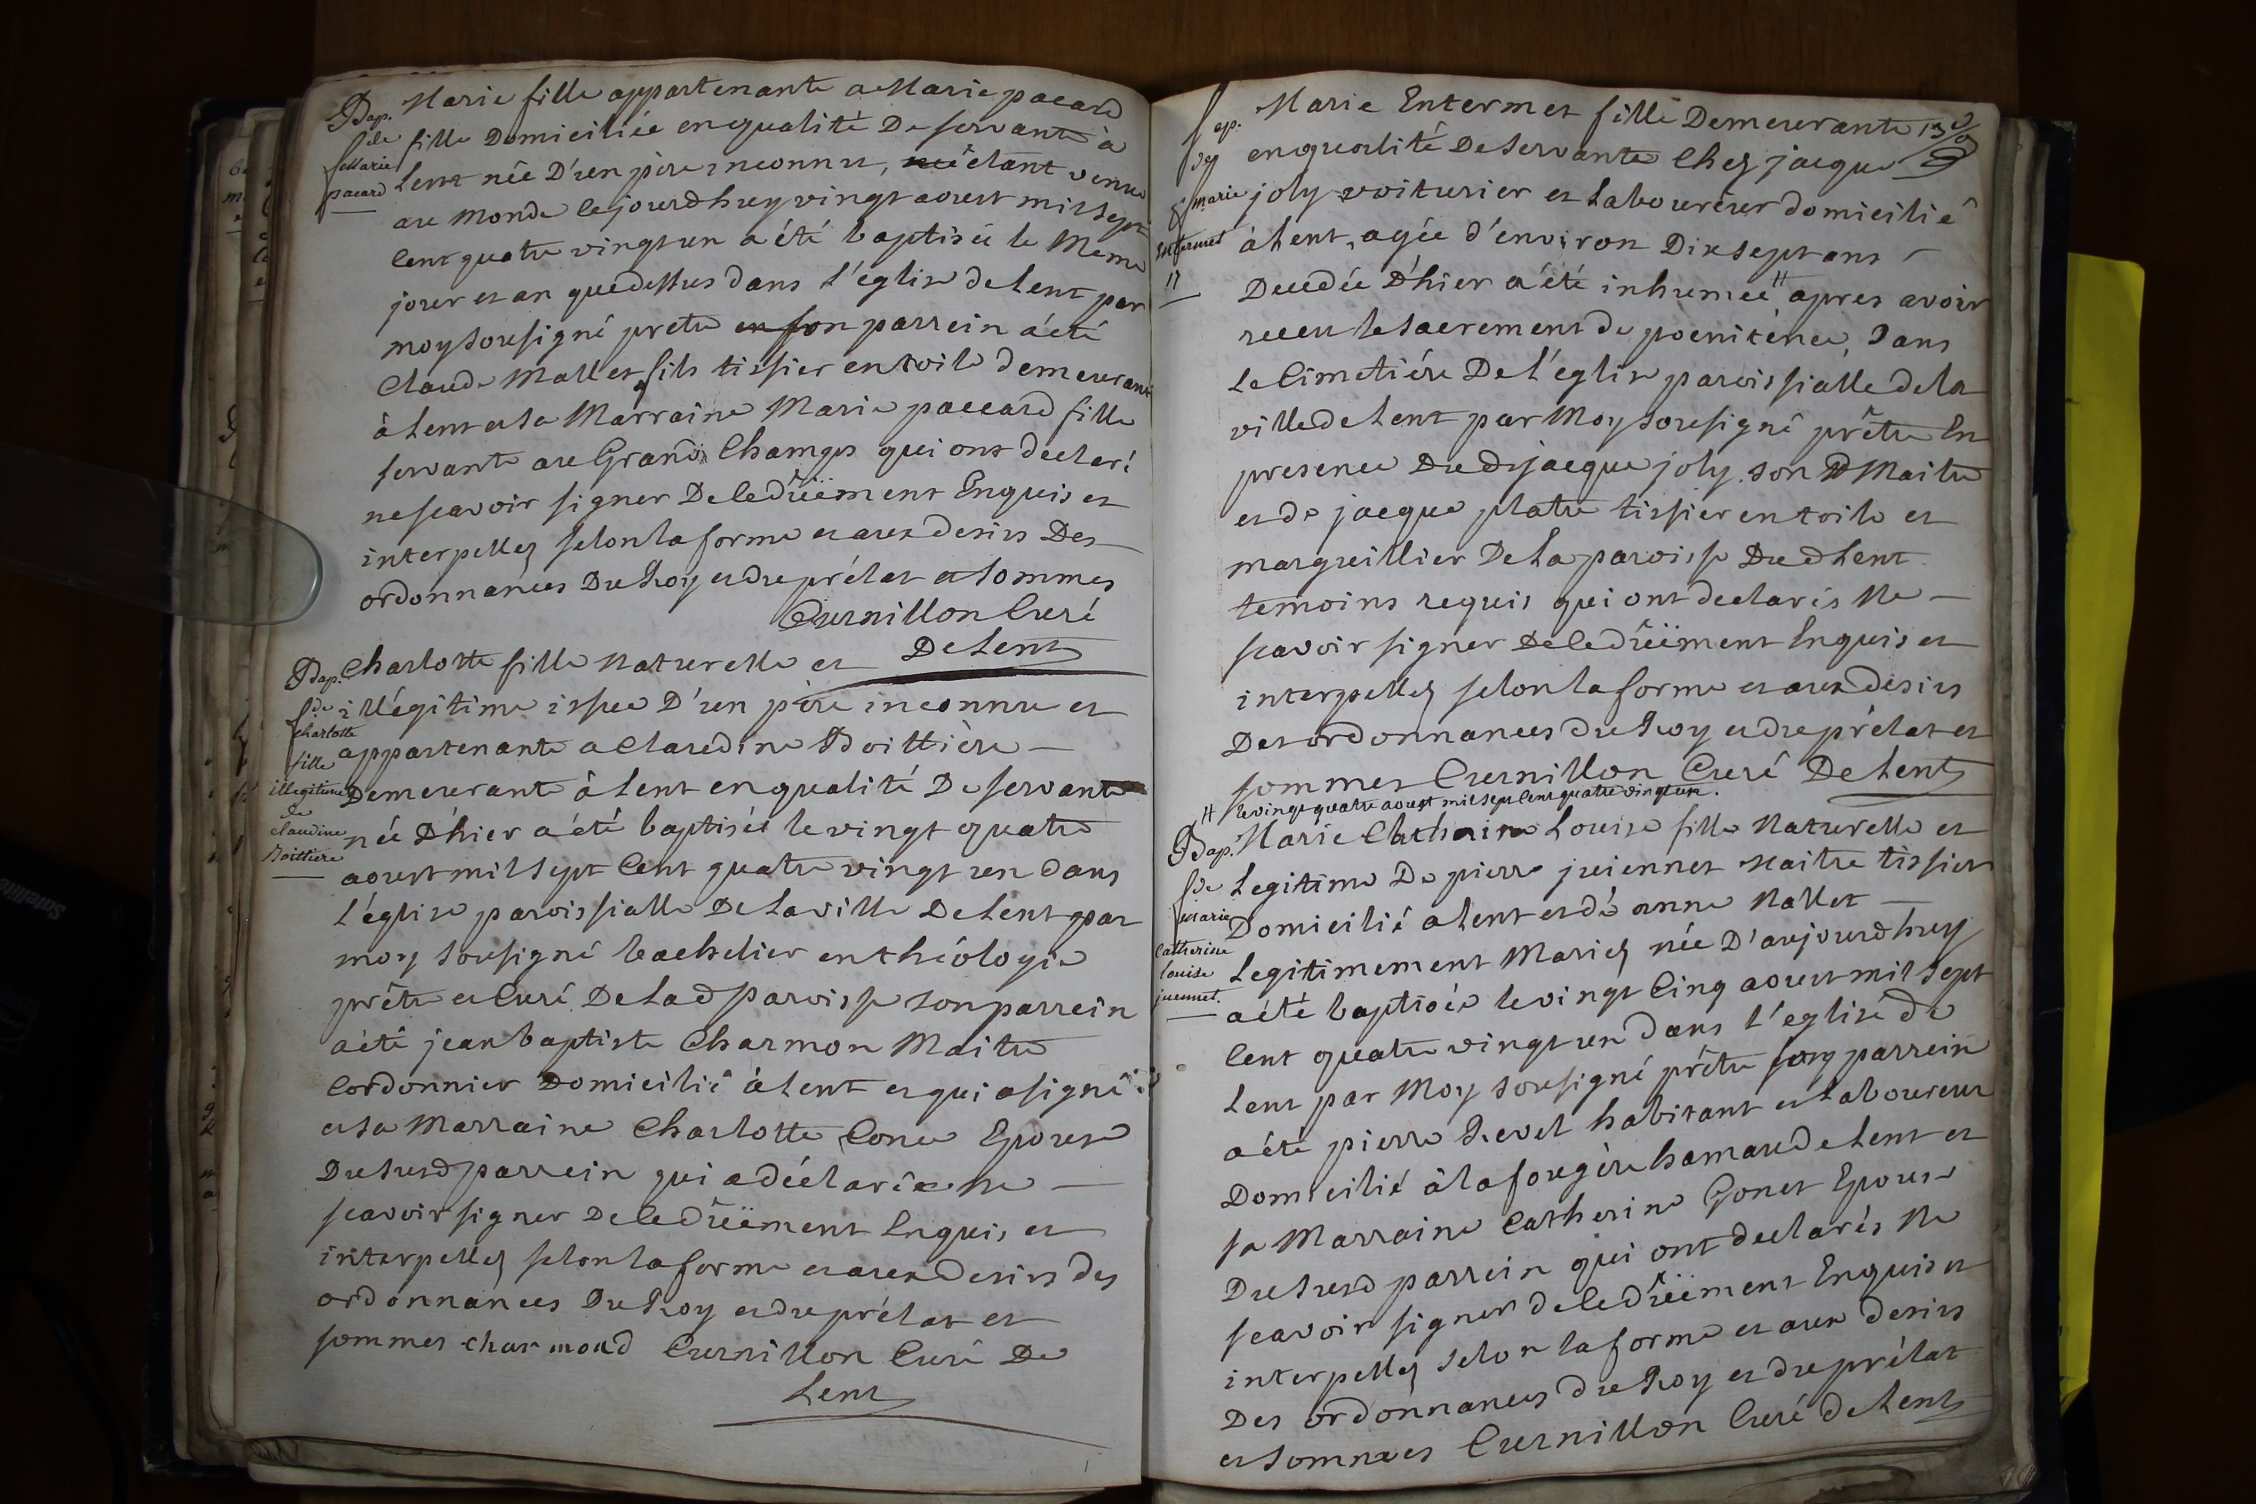 Bap.
de
Marie
pacard
Marie fille appartenante a Marie pacard
fille Domiciliée enqualité De servante à
Lent née D'un père inconnu, étant venue
au Monde cejourdhuy vingt aoust mil sept
Cent quatre vingt un a été baptisée le Meme
jour et an quedessus dans l'église de Lent par
moy sousigné pretre son parrein a été
Claude Mallet fils tissier en toile demeurant
à Lent et sa Marraine Marie paccard fille
servante au Grand Champs qui ont declaré
ne scavoir signer De ce düëment Enquis et
interpellez selon la forme et aux desirs Des
ordonnances Du Roy et du prélat et sommes
Curnillon Curé
De Lent
Bap.
de
charlotte
fille
illegitime
de
claudine
Boittiere
Charlotte fille Naturelle et
illégitime issue D'un père inconnu et
appartenante a Claudine Boittière
Demeurante à Lent en qualité De servante
née D'hier a été baptisée le vingt quatre
aoust mil sept Cent quatre vingt un dans
L'église paroissialle De La ville De Lent par
moy sousigné bachelier en théologie
prêtre et Curé De Lad paroisse son parrein
a été jean baptiste Charmon Maitre
Cordonnier Domicilié à Lent et qui a signé
et sa Marraine Charlotte Cone Epouse
Du susd parrein qui a déclaré ne
scavoir signer De ce düëment Enquis et
interpellez selon la forme et aux desirs des
ordonnances Du Roy et du prélat et
sommes charmond Curnillon Curé De
Lent
marie
Entermet
17
Marie Entermet fille Demeurante
en qualité De servante Chez jacque
joly voiturier et Laboureur domicilié
à Lent, agée d'environ Dix sept ans
Decedée D'hier a été inhumée # apres avoir
receu le sacrement de poenitence, Dans
Le Cimetière De L'église paroissialle de la
ville de Lent par Moy sousigné prêtre En
presence Dud jacque joly son Maitre
et de jacque platre tissier en toile et
marguillier De La paroisse Dud Lent
temoins requis qui ont declarés Ne
scavoir signer De ce düëment Enquis et
interpellez selon la forme et aux desirs
Des ordonnances du Roy et du prélat et
sommes Curnillon Curé De Lent
# le vingt quatre aoust mil sept Cent quatre vingt un.
Bap.
de
marie
Catherine
louise
juennet.
Marie Catherine Louise fille Naturelle et
Legitime De pierre juennet Maitre tissier
Domicilié a Lent et de anne Mallet
Legitimement Mariez née D'aujourdhuy
a été baptisée le vingt Cinq aoust mil sept
Cent quatre vingt un dans l'eglise de
Lent par Moy sousigné prêtre son parrein
a été pierre Revel habitant et Laboureur
Domicilié à la fougère hamau de Lent et
sa Marraine Catherine Gonet Epouse
Du susd parrein qui ont declarés Ne
scavoir signer de ce düëment Enquis et
interpellez selon la forme et aux desirs
Des ordonnances du Roy et du prélat
et sommes Curnillon Curé de Lent